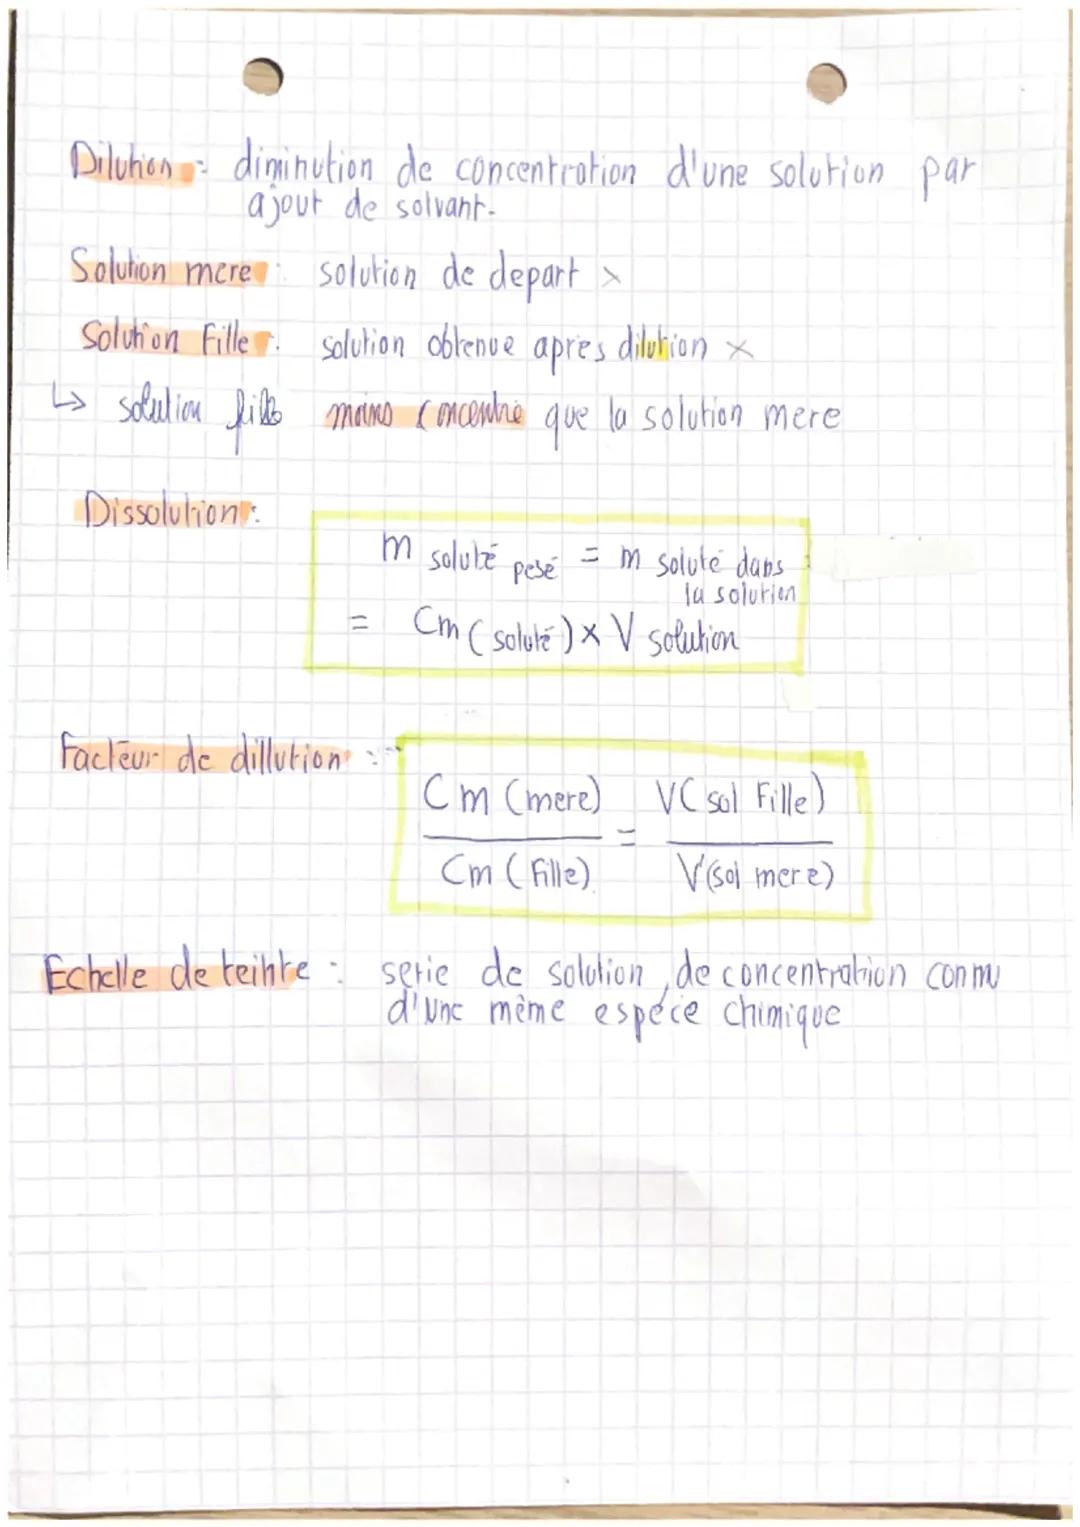 Dilution : diminution de concentration d'une solution par
ajout de solvant.
Solution mere : solution de depart ×
Solution Fille : solution obtenue apres dilution ×
↳ solution fille moins concentré que la solution mere
Dissolution :
m soluté pesé = m soluté dans
la solution
= Cm (soluté) × V solution
Facteur de dillution :
Cm (mere) = V(sol Fille)
Cm (Fille) V(sol mere)
Echelle de teinte : serie de solution, de concentration connu
d'une même espéce chimique